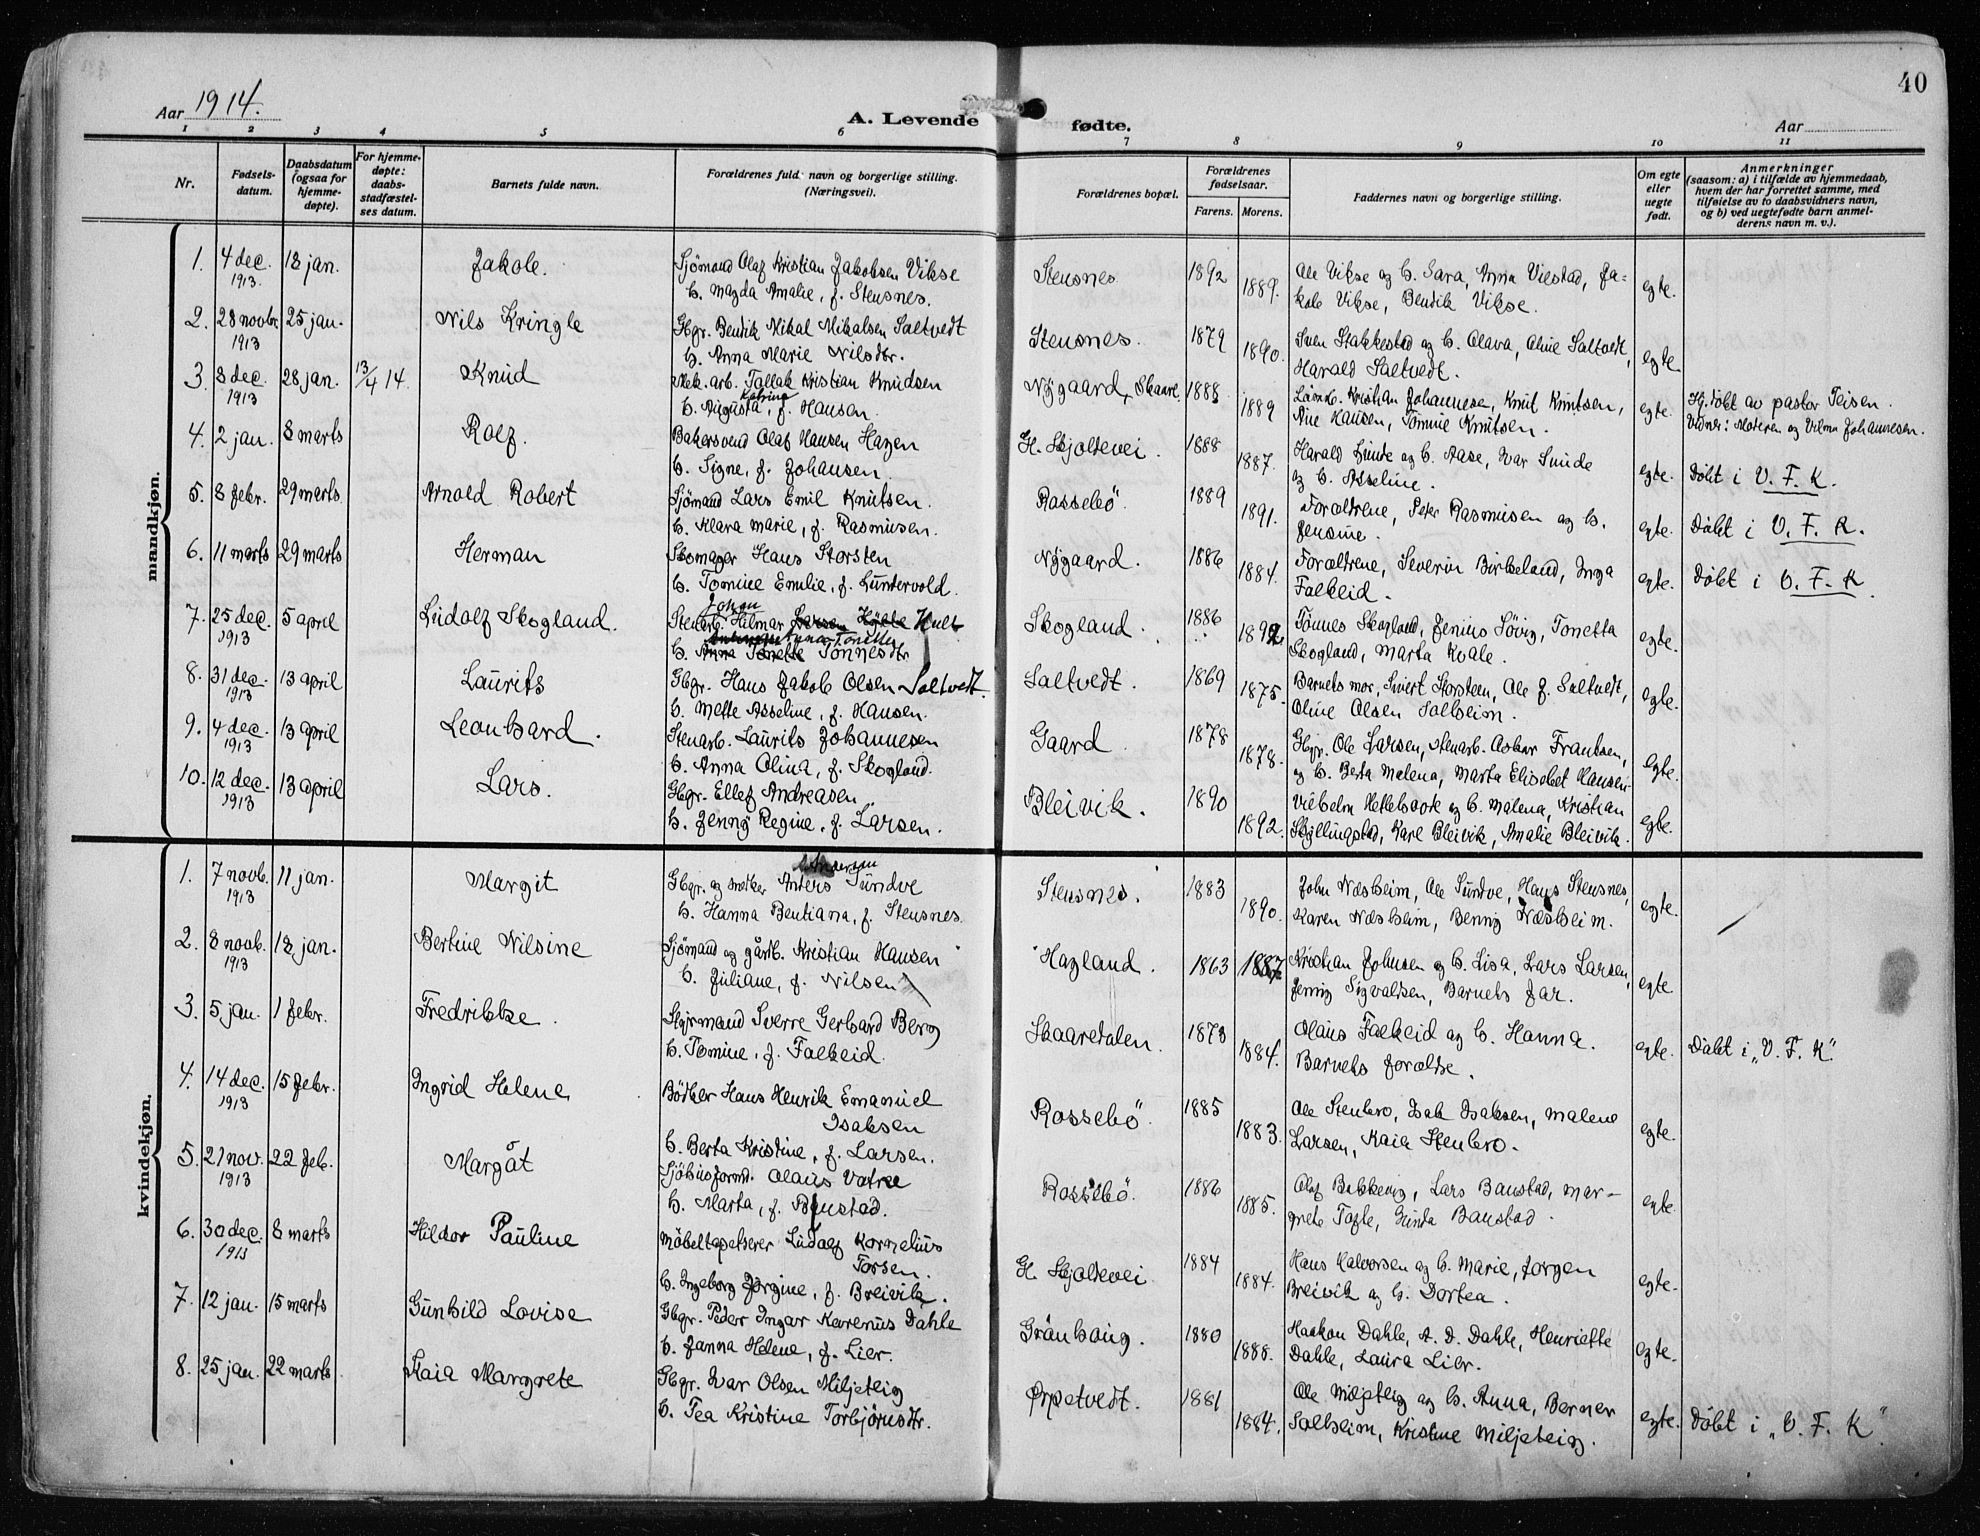 40
Aar 1914.
A. Levende fødte.
Aar
1 2 3 4 5 6 7 8 9 10 11
Nr.
Fødsels-
datum.
Daabsdatum
(ogsaa for
hjemme-
døpte).
For hjemme-
døpte:
daabs-
stadfæstel-
ses datum.
Barnets fulde navn.
Forældrenes fuld navn og borgerlige stilling.
(Næringsvei).
Forældrenes bopæl.
Forældrenes
fødselsaar.
Farens. Morens.
Faddernes navn og borgerlige stilling.
Om egte
eller
uegte
født.
Anmerkninger
(saasom: a) i tilfælde av hjemmedaab,
hvem der har forrettet samme, med
tilføielse av to daabsvidners navn,
og b) ved uegtefødte barn anmel-
derens navn m. v.).
mandkjøn.
1. 4 dec. 1913. 18 jan. Jakob. Sjömand Olaf Kristian Jakobsen Vikse Stensnes 1892 Ole Vikse og h. Sara, Anna Viestad, Ja-
h. Magda Amalie, f. Stensnes. 1889. kob Vikse, Bendik Vikse. egte.
2. 28 novbr. 1913 25 jan. Nils Kringle Gbgr. Bendik Mikal Mikalsen Saltvedt Stensnes. 1879 Sven Stakkestad og h. Olava, Oline Saltvedt,
h. Anna Marie Nilsdtr. 1890. Harald Saltvedt. egte
3. 8 dec. 1913 28 jan. 13/4 14. Knud Mek. arb. Tallak Kristian Knudsen Nygaard, Skaare. 1888 Kristian Johannese, Knut Knutsen, Hj. døbt av pastor Teisen.
h. Augusta Katrine, f. Hansen. 1889 Ane Hansen, Tomine Knutsen. egte. Vidner: Moteren og Vilma Johannesen.
4. 2 jan. 8 marts Rolf. Bakersvend Olaf Hansen Hagen H. Skjoldevei. 1888 Harald Lunde og h. Aase, Ivar Sunde
h. Signe, f. Johansen. 1887. og h. Asseline. egte. Døbt i V. F. K.
5. 8 febr. 29 marts Arnold Robert Sjömand Lars Emil Knutsen. Rossebö 1889 Forældrene, Peter Rasmusen og h.
h. Klara Marie, f. Rasmusen. 1891. Jensine. egte. Døbt i V. F. K.
6. 11 marts 29 marts Herman Skomager Hans Storsten Nygaard. 1886 Forældrene, Severin Birkeland, Inga
h. Tomine Emilie, f. Lundervold. 1884. Falkeid. egte. Døbt i V. F. K.
7. 25 dec. 1913 5 april Ludolf Skogland. Stenarb. Johan Hilmar Larsen Hult Skogland. 1886 Tönnes Skogland, Jenius Sövig, Tonetta
h. Anna Tonette Tönnesdtr 1892 Skogland, Marta Kvale. egte.
8. 31 dec. 1913 13 april Laurits Gbgr. Hans Jakob Olsen Saltvedt. Saltvedt. 1869 Barnets mor, Sivert Storsteen, Ole J. Saltvedt,
h. Mette Asseline, f. Hansen. 1875. Oline Olsen Solheim. egte.
9. 4 dec. 1913 13 april Leonhard. Stenarb. Laurits Johannesen Gaard 1878 Gbgr. Ole Larsen, stenarb. Oskar Frantsen,
h. Anna Olina, f. Skogland. 1878. og h. Berta Malena, Marta Elisabet Hansen. egte.
10. 12 dec. 1913 13 april Lars. Gbgr. Ellef Andreasen. Bleivik. 1890 Vilhelm Hettebook og h. Malena, Kristian
h. Jenny Regine, f. Larsen. 1892. Skjellingstad, Karl Bleivik, Amalie Bleivik. egte.
kvindekjøn.
1. 7 novb. 1913 11 jan. Margit Gbgr. og snekker Anders Andersen Sundve Stensnes. 1883 John Næsheim, Ole Sundve, Hans Stensnes,
h. Hanna Bentiana, f. Stensnes. 1890. Karen Næsheim, Benny Næsheim. egte.
2. 8 novb. 1913 18 jan. Bertine Nilsine Sjömand og gårdb. Kristian Hansen Hagland. 1863 1887 Kristian Johnsen og h. Lisa, Lars Larsen,
h. Juliane, f. Nilsen Jenny Sigvaldsen, Barnets far. egte.
3. 5 jan. 1 febr. Fredrikke. Styrmand Sverre Gerhard Berg Skaaredalen. 1873 Olaus Falkeid og h. Hanna.
h. Tomine, f. Falkeid. 1884. Barnets forældre. egte. Døbt i „V. F. K".
4. 14 dec. 1913 15 febr. Ingrid Helene Bödker Hans Henrik Emanuel Rossebö 1885 Ole Stenbro, Isak Isaksen, Malene
Isaksen 1883. Larsen, Kaia Stenbro. egte.
h. Berta Kristine, f. Larsen.
5. 21 nov. 1913 22 feb. Margåt Sjöhusformd. Olaus Vatne Rossebö. 1886 Olaf Bakkevig, Lars Baustad, Mar-
h. Marta, f. Baustad. 1885. grete Tofte, Gunda Baustad. egte.
6. 30 dec. 1913 8 marts Hildor Pauline Möbeltapetserer Ludolf Kornelius G. Skjoldevei 1884 Hans Halvorsen og h. Marie, Jörgen
Torsen. 1884. Breivik og h. Dortea. egte.
h. Ingeborg Jörgine, f. Breivik.
7. 12 jan. 15 marts Gunhild Lovise Gbgr. Peder Ingar Karenus Dahle Grönhaug. 1880 Haakon Dahle, A. D. Dahle, Henriette
h. Janna Helene, f. Lier. 1888. Dahle, Laura Lier. egte.
8. 25 jan. 22 marts Kaia Margrete Gbgr. Ivar Olsen Miljeteig Ørpetvedt. 1881 Ole Miljeteig og h. Anna, Berner
h. Tea Kristine Torbjörnsdtr. 1884. Solheim, Kristine Miljeteig. egte. Døbt i „V. F. K".